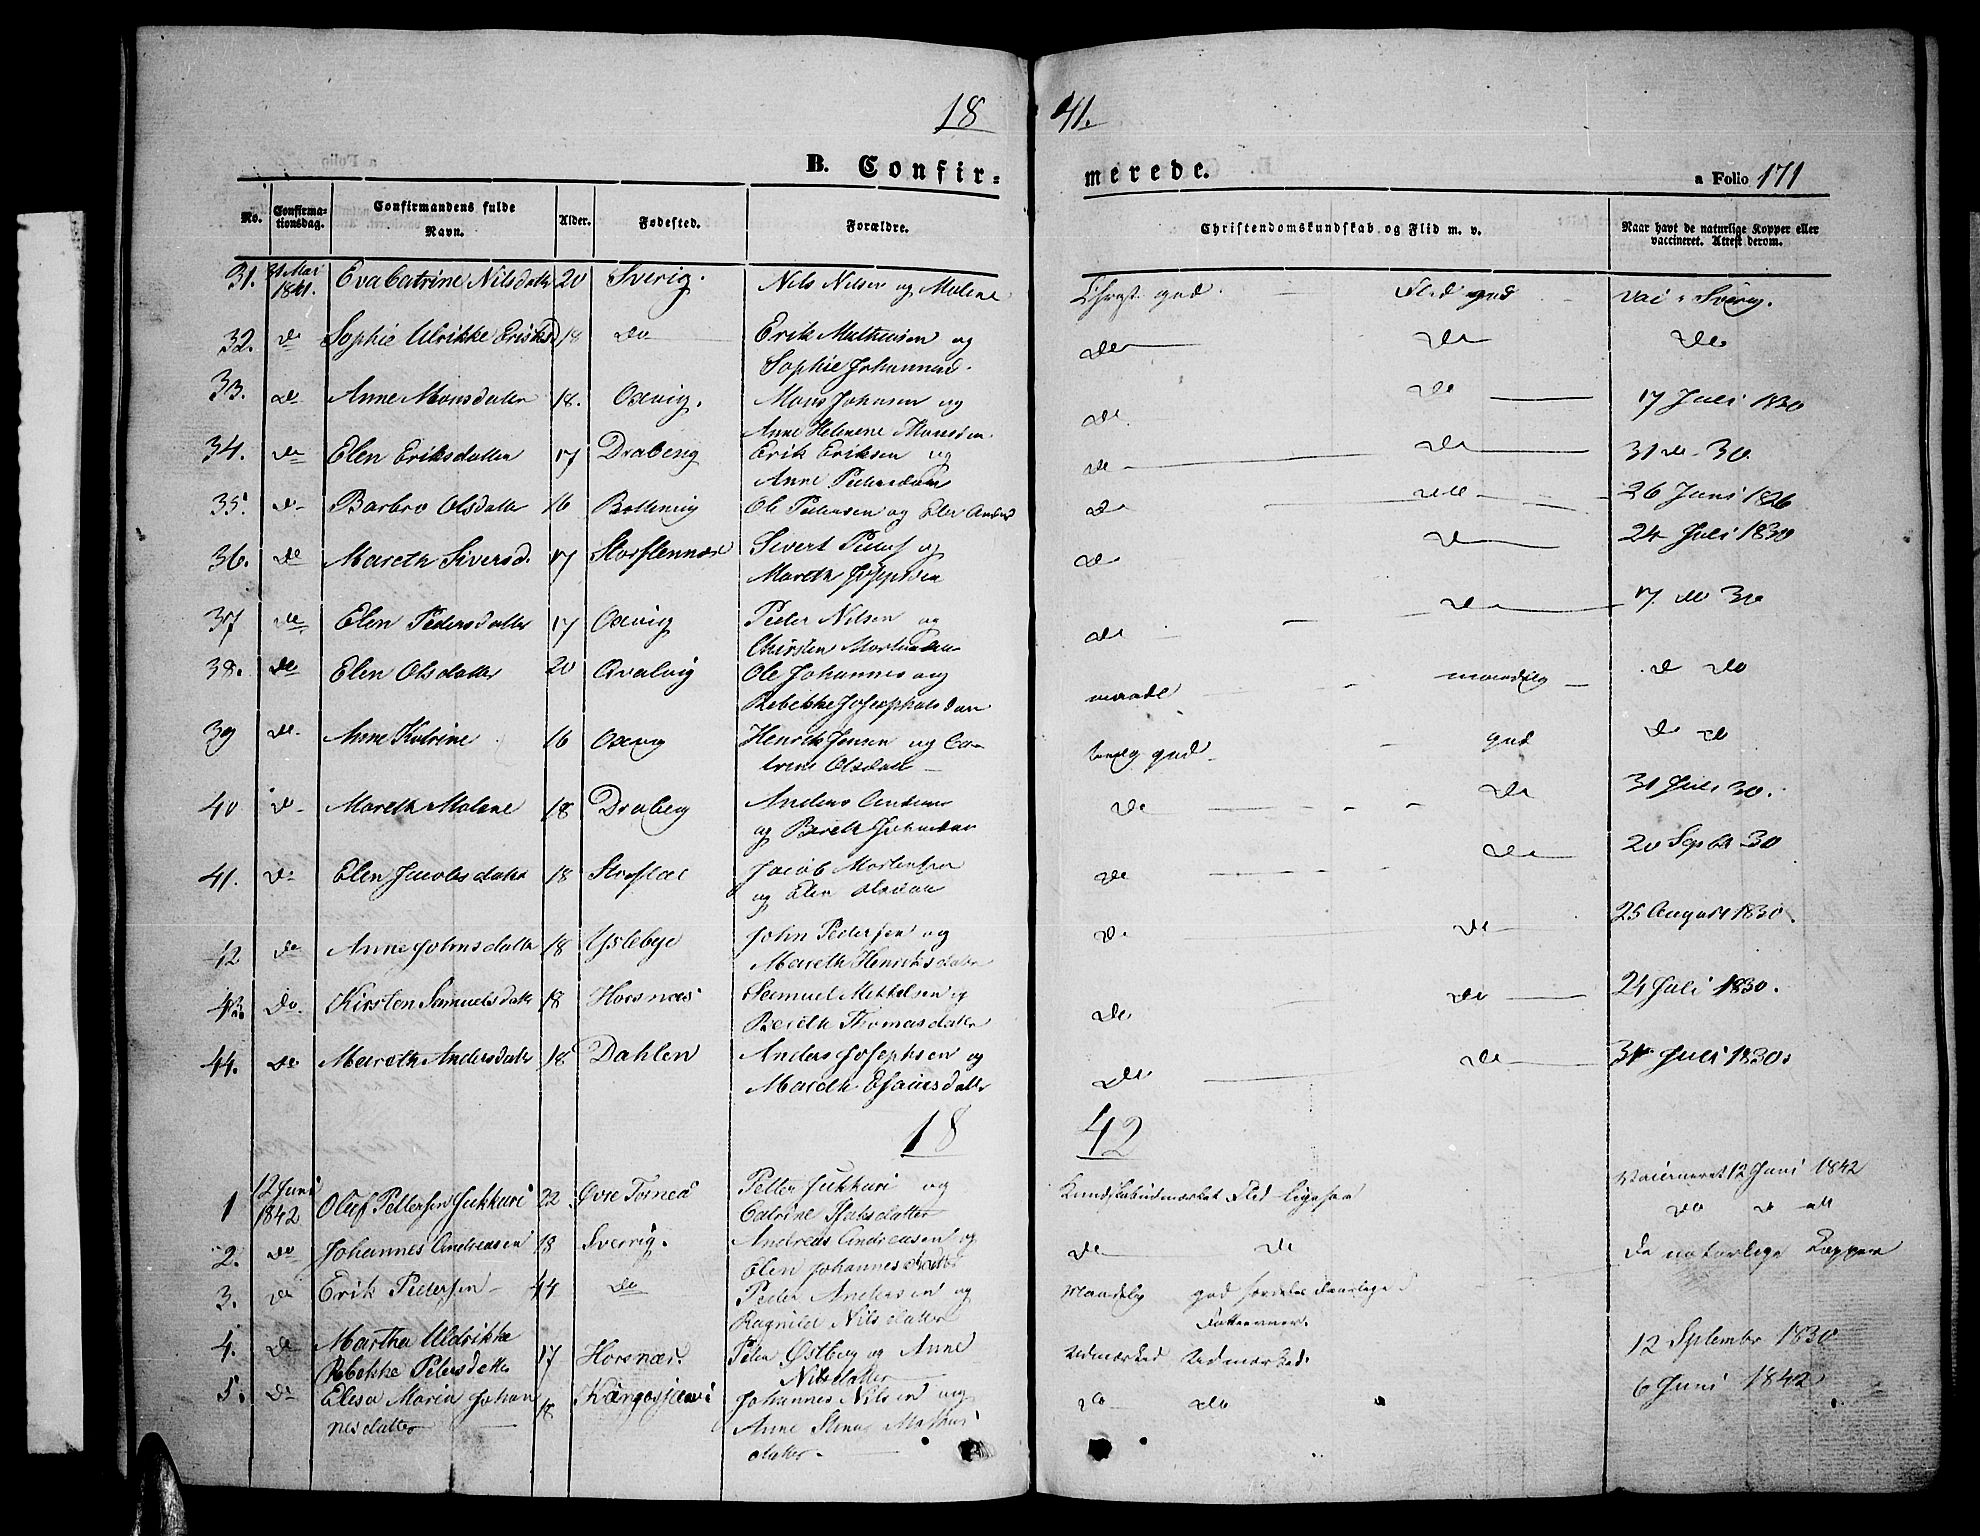 18 41.
B. Confirmerede. a Folio 171
No. Confirmationsdag. Confirmandens fulde Navn. Alder. Fødested. Forældre. Christendomskundskab og Flid m. v. Naar havt de naturlige Kopper eller vaccineret. Attest derom.
31. 31 Mai 1841. Eva Catrine Nilsdatter 20 Sverig. Nils Nilsen og Malene god. Flid god vac i Sverig.
32. do Sophie Ulrikke Eriksd 18 do Erik Mathisen og do do do
Sophie Johannesd.
33. do Anne Monsdatter 18. Oxvig. Mons Johnsen og do do 17 Juli 1830
Anne Helene Monsdtr
34. do Elen Eriksdatter 17 Draberg Erik Eriksen og do do 31 do 30.
Anne Pedersdatter
35. do Barbro Olsdatter 16 Ole Pedersen og Elen Andersd do do 26 Juni 1826
36. do Mareth Siversd. 17 Storslennæs Sivert Peders og do do 24 Juli 1830
Mareth
37 do Elen Pedersdatter 17 Oxvig Peder Nilsen og do do 17. do 30
Chirsten Mortensdatter
38. do Elen Olsdatter 20 Qvalvig Ole Johannes og maadl maadelig do do
Rebekke Josephsdatter
39 do. Anne Katrine 16 Oxvig Henrik Jensen og Ca- god god do do
trine Olsdatter
40 do Mareth Malene 18 Draberg Anders Anders do do 31 Juli 30.
og Bereth Johnsdatter
41. do Elen Jacobsdatter 18 Jacob Mortensen do do 20 Septb 30
og Elen Olsdatter
42 do Anne Johnsdatter 18 Yslebye John Pedersen og do do 25 August 1830.
Mareth Henriksdatter
43. do. Kirsten Samuelsdatter 18 Horsnæs Samuel Mikkelsen og do do 24 Juli 1830.
Berith Thomasdatter
44. do Mareth Andersdatter 18 Dahlen Anders Josephsen og do do 31 Juli 1830.
Mareth Esaiasdatter
18 42
1 12 Juni 1842 Oluf Pettersen Jukkuri 22. Øvre Torneå Petter Jukkuri og Kundskab udmærket Flid ligesaa Vaccineret 12 Juni 1842
Catrine Isaksdatter
2. do Johannes Andreasen 18 Sverrig. Andreas Andreasen og do do do do
Elen Johannesdatter
3. do Erik Pedersen 44 do Peder Andersen og Maadelig god De naturlige Kopper
Ragnild Nilsdatter
4. do Martha Uldrikke 17 Horsnæs. Peter Østberg og Anne Udmærket Udmærket. 12 Septembr 1830
Rebekke Petersdatter Nilsdatter
5. do Elesa Maria Johan 18 Kængesjærvi Johannes Nilsen og do do 6 Juni 1842
nesdatter Anne Stina
datter.